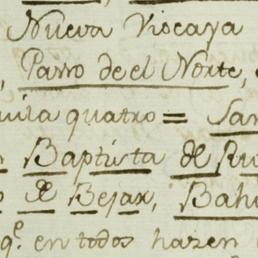 Nueva Viscaya
Passo de el Norte,
uila quatro = San
Baptista de Rio
de Bejar, Bahi
q.^e en todos hazen